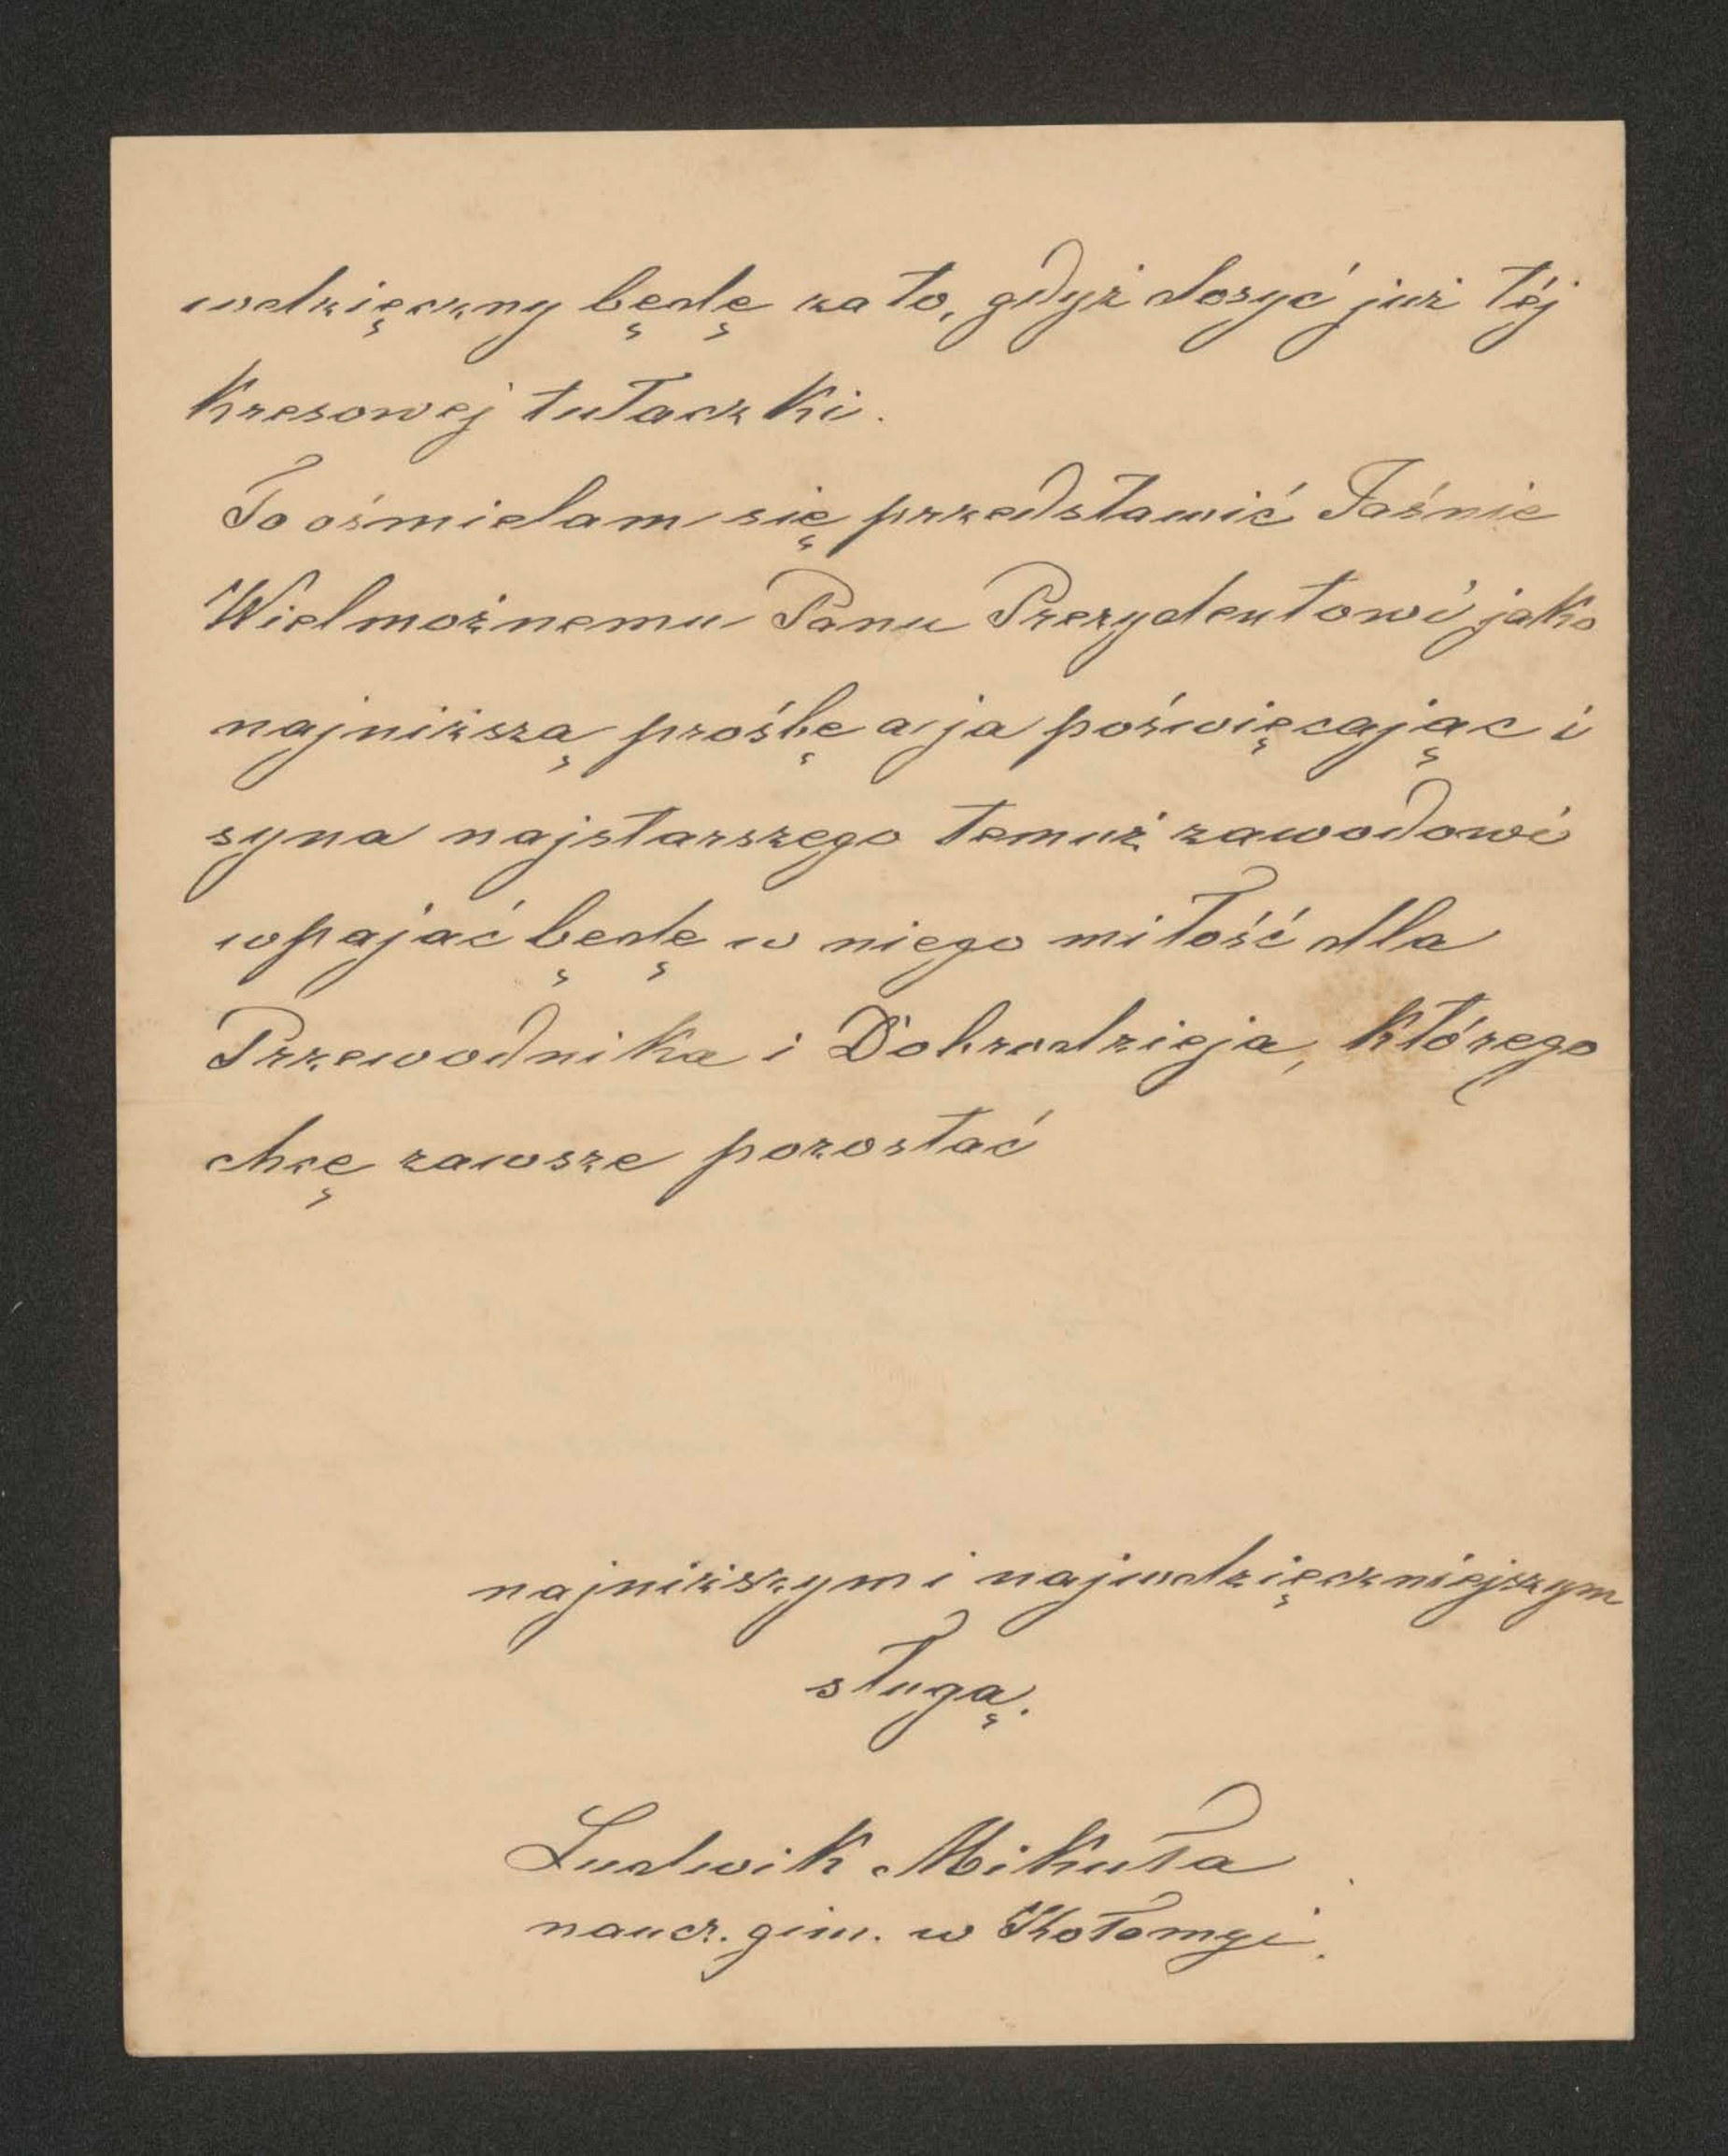 wdzięczny będę za to, gdyż dosyć już téj
kresowej tułaczki.
To ośmielam się przedstawić Jaśnie
Wielmożnemu Panu Prezydentowi jako
najniższą prośbę a ja poświęcając i
syna najstarszego temuż zawodowi
wpajać będę w niego miłość dla
Przewodnika i Dobrodzieja, którego
chcę zawsze pozostać
najniższym i najwdzięczniejszym
sługą.
Ludwik Mikuła
naucz. gim. w Kołomyi.